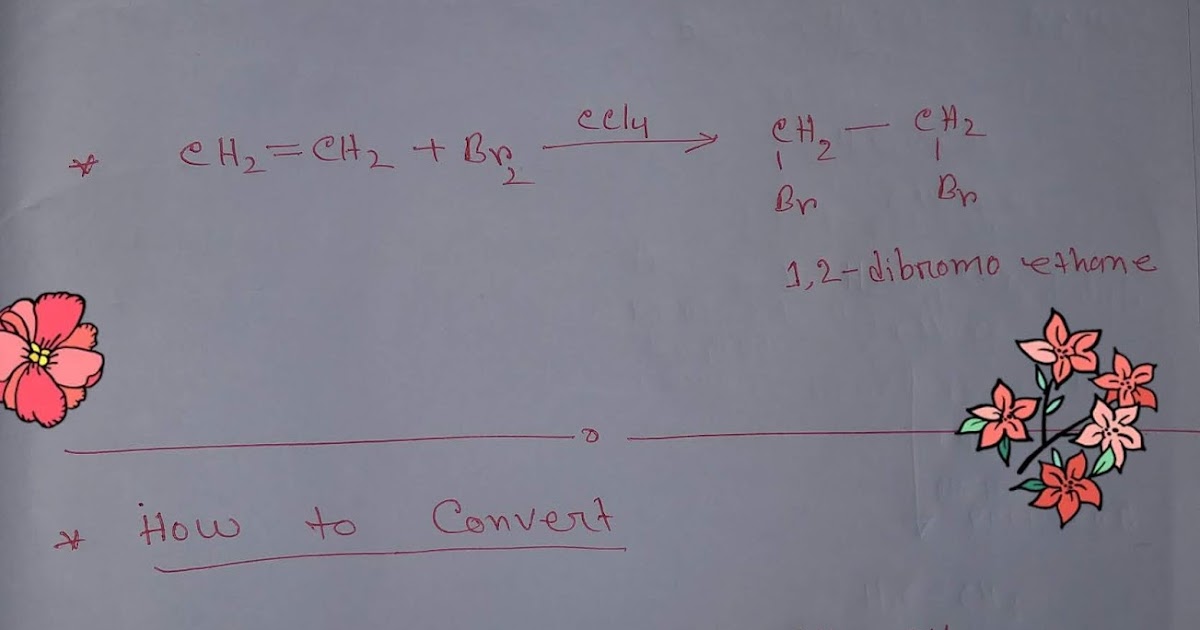 * CH₂=CH₂ + Br₂ CCl₄ → CH₂ — CH₂
Br Br
1,2-dibromo ethane
* How to Convert